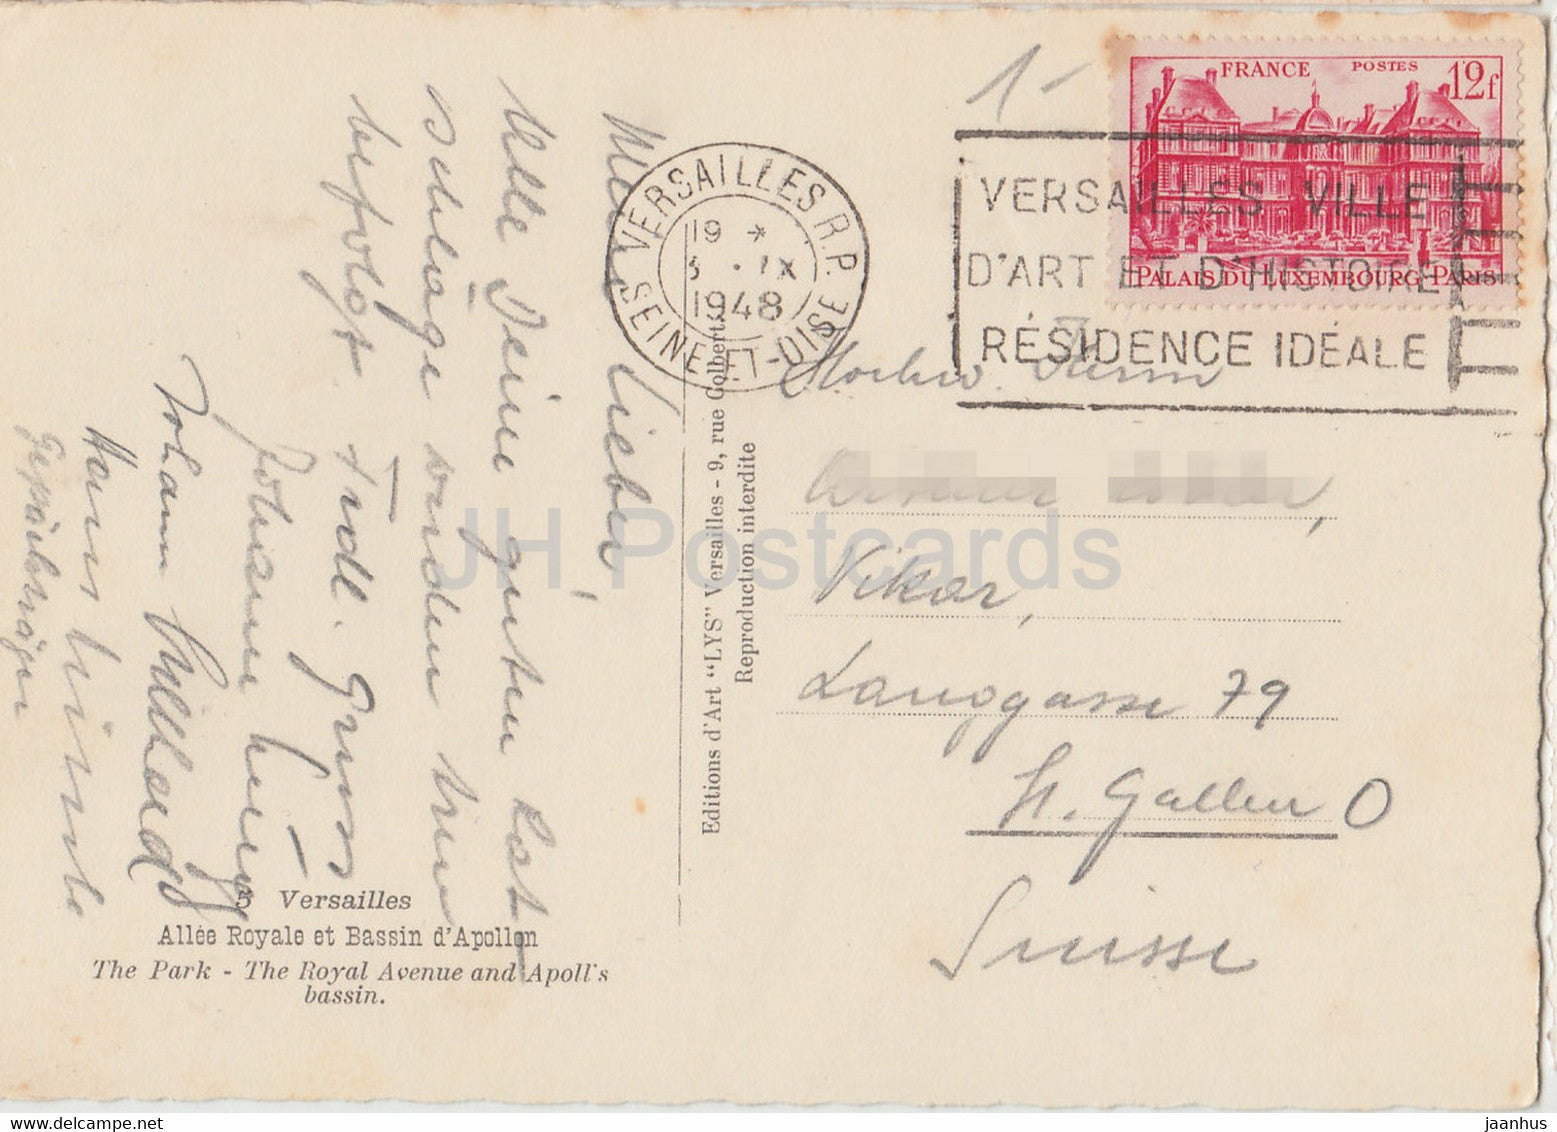 Mein Lieber,
Alle Deine guten Rat-
schläge wurden treu
befolgt. Frdl. Gruss
Johann
Johann
Hans
5 Versailles
Allée Royale et Bassin d'Apollon
The Park - The Royal Avenue and Apoll's
bassin.
Editions d'Art "LYS" Versailles - 9, rue Colbert
Reproduction interdite
1-
FRANCE POSTES 12f
PALAIS DU LUXEMBOURG-PARIS
VERSAILLES R.P.
19 *
3 . IX
1948
SEINE-ET-OISE
VERSAILLES VILLE
D'ART ET D'HISTOIRE
RÉSIDENCE IDÉALE
Vikar,
Langgasse 79
St. Gallen O
Suisse
JH Postcards
www.delcampe.net
jaanhus